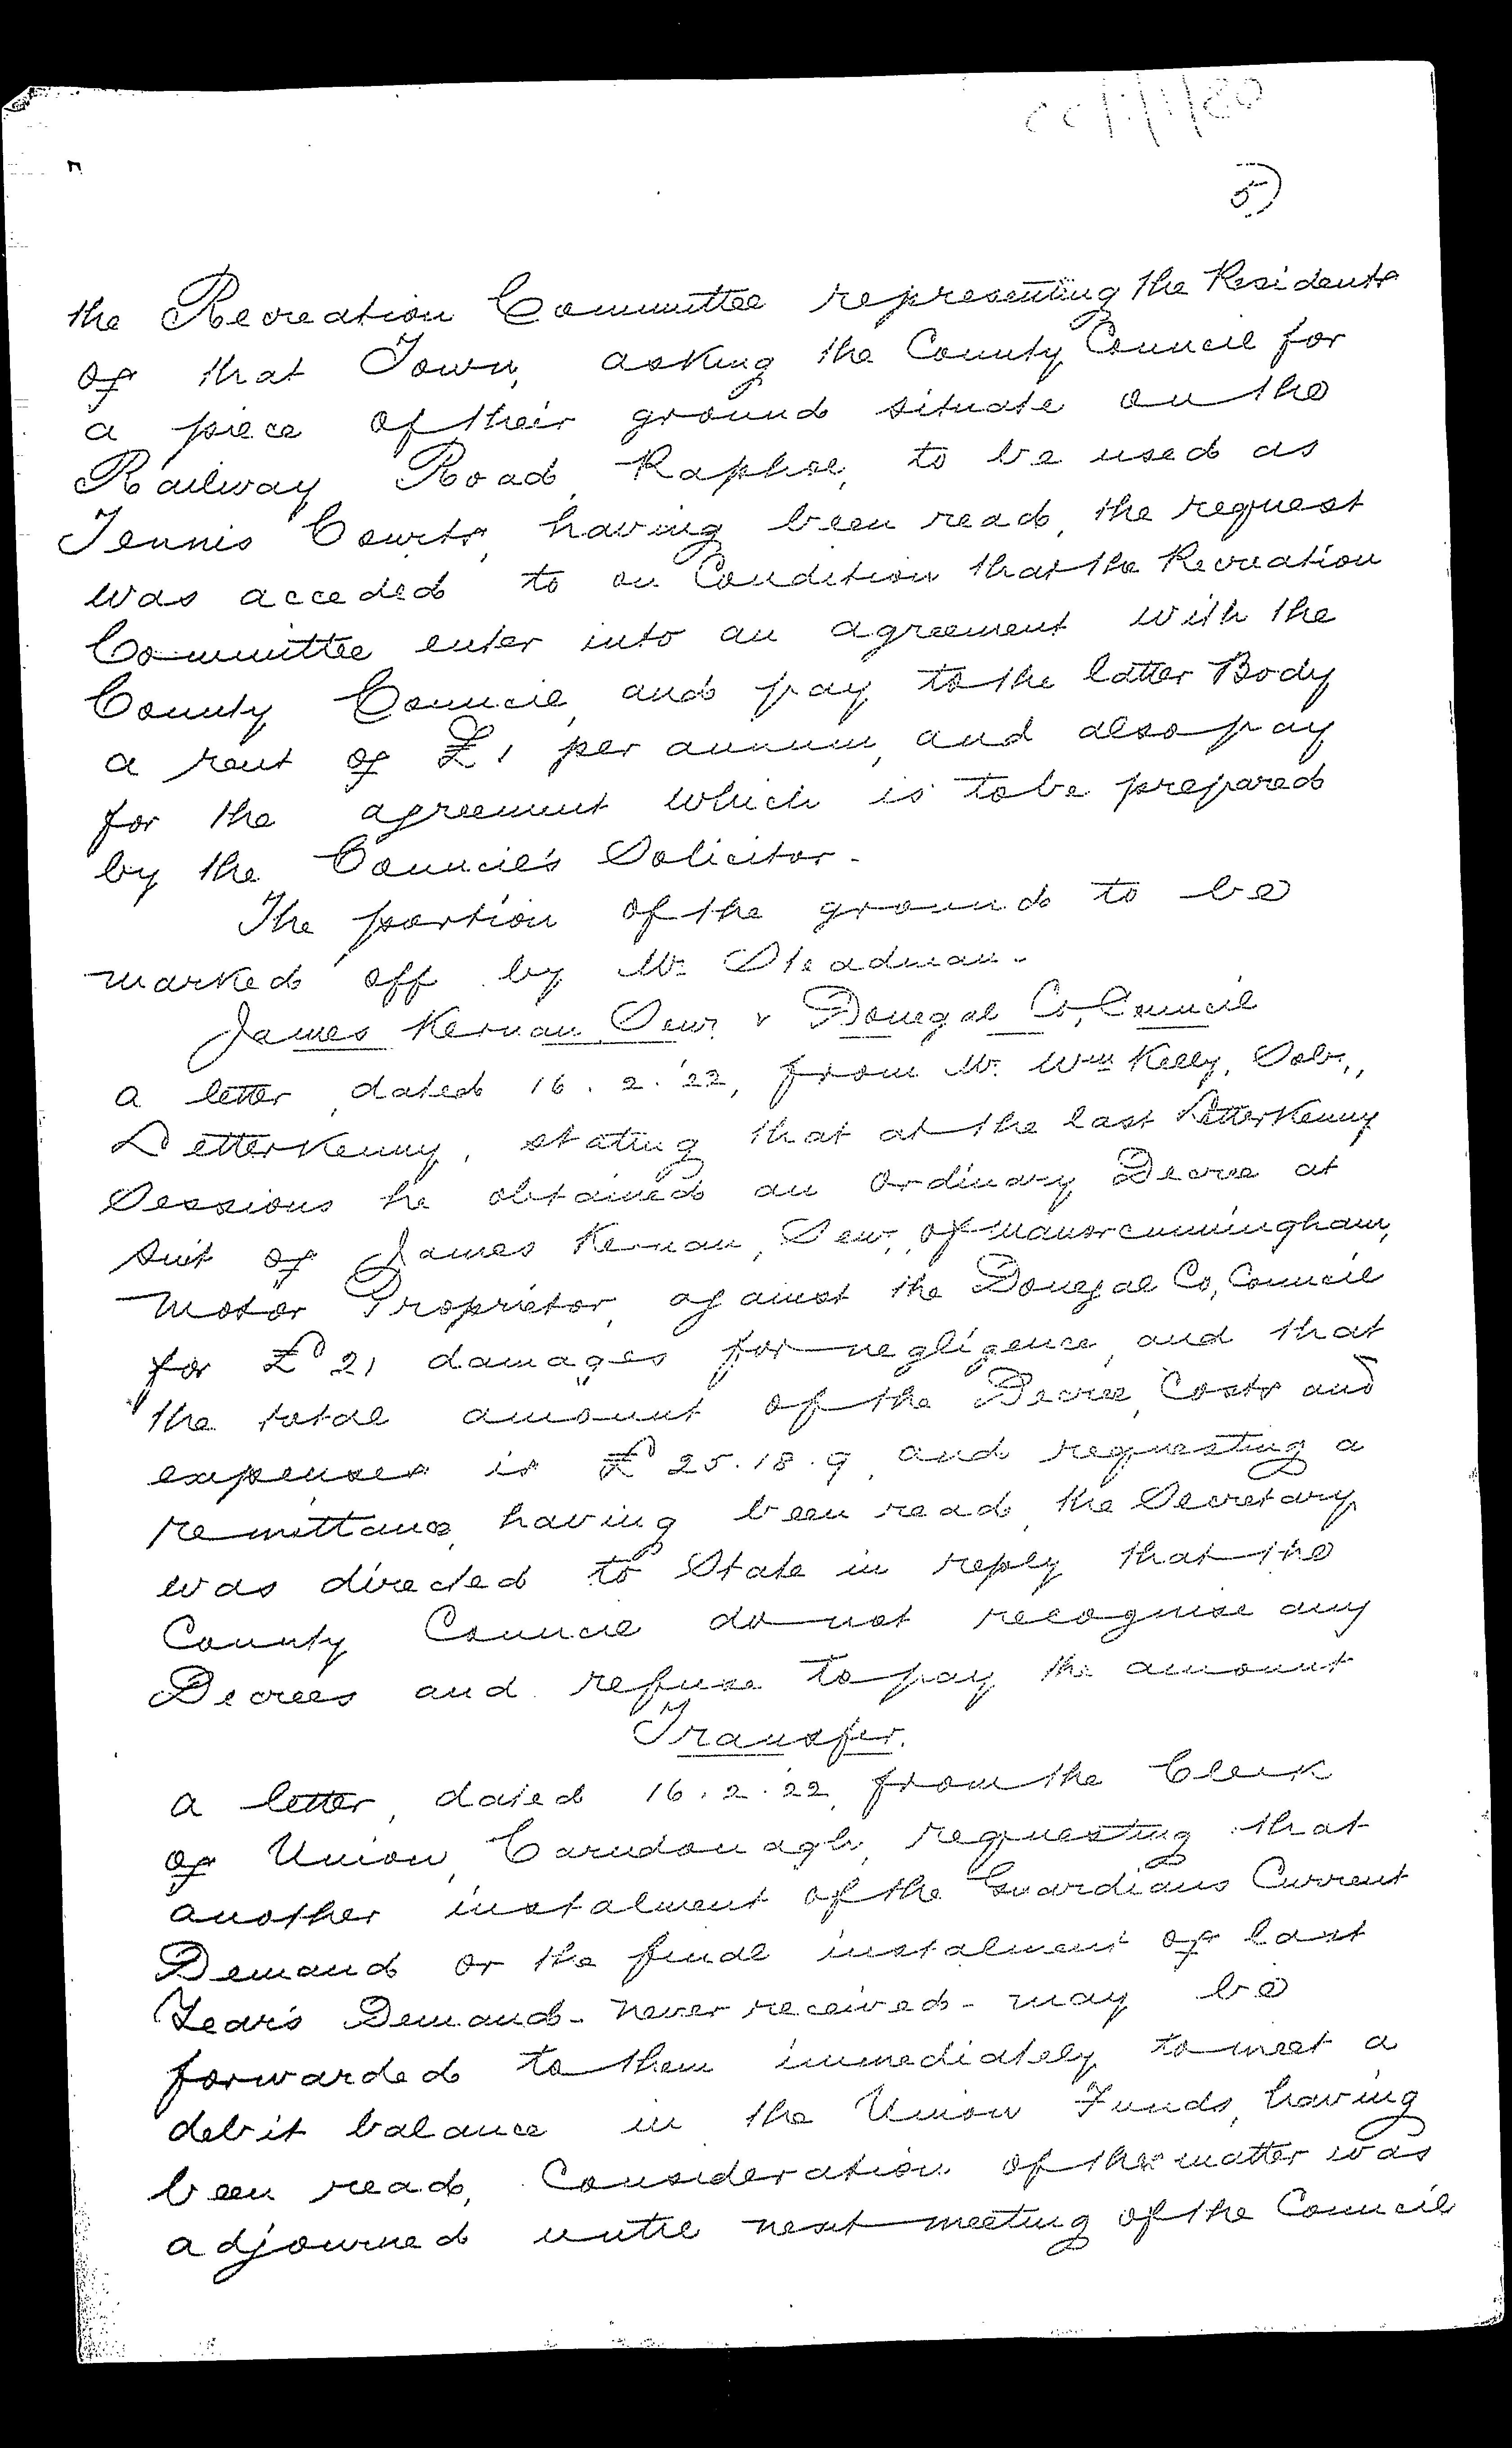 5)
the Recreation Committee representing the Residents
of that Town, asking the County Council for
a piece of their ground situate on the
Railway Road, Raphoe, to be used as
Tennis Courts, having been read, the request
was acceded to on Condition that the Recreation
Committee enter into an agreement with the
County Council, and pay to the latter Body
a rent of £1 per annum, and also pay
for the agreement which is to be prepared
by the Council's Solicitor.
The portion of the ground to be
marked off by Mr. Steadman.
James Kernan Senr. v Donegal Co, Council
a letter, dated 16.2.'22, from Mr. Wm Kelly, Solr.,
Letterkenny, stating that at the last Letterkenny
Sessions he obtained an Ordinary Decree at
suit of James Kernan, Senr., of Manorcunningham,
Motor Proprietor, against the Donegal Co, Council
for £21 damages for negligence, and that
the total amount of the Decree, Costs and
expenses is £25.18.9, and requesting a
remittance, having been read, the Secretary
was directed to State in reply that the
County Council do not recognise any
Decrees and refuse to pay the amount
Transfer.
a letter, dated 16.2.'22, from the Clerk
of Union, Carndonagh, requesting that
another instalment of the Guardians Current
Demand or the final instalment of last
Year's Demand - never received - may be
forwarded to them immediately to meet a
debit balance in the Union Funds, having
been read, Consideration of the matter was
adjourned until next meeting of the Council